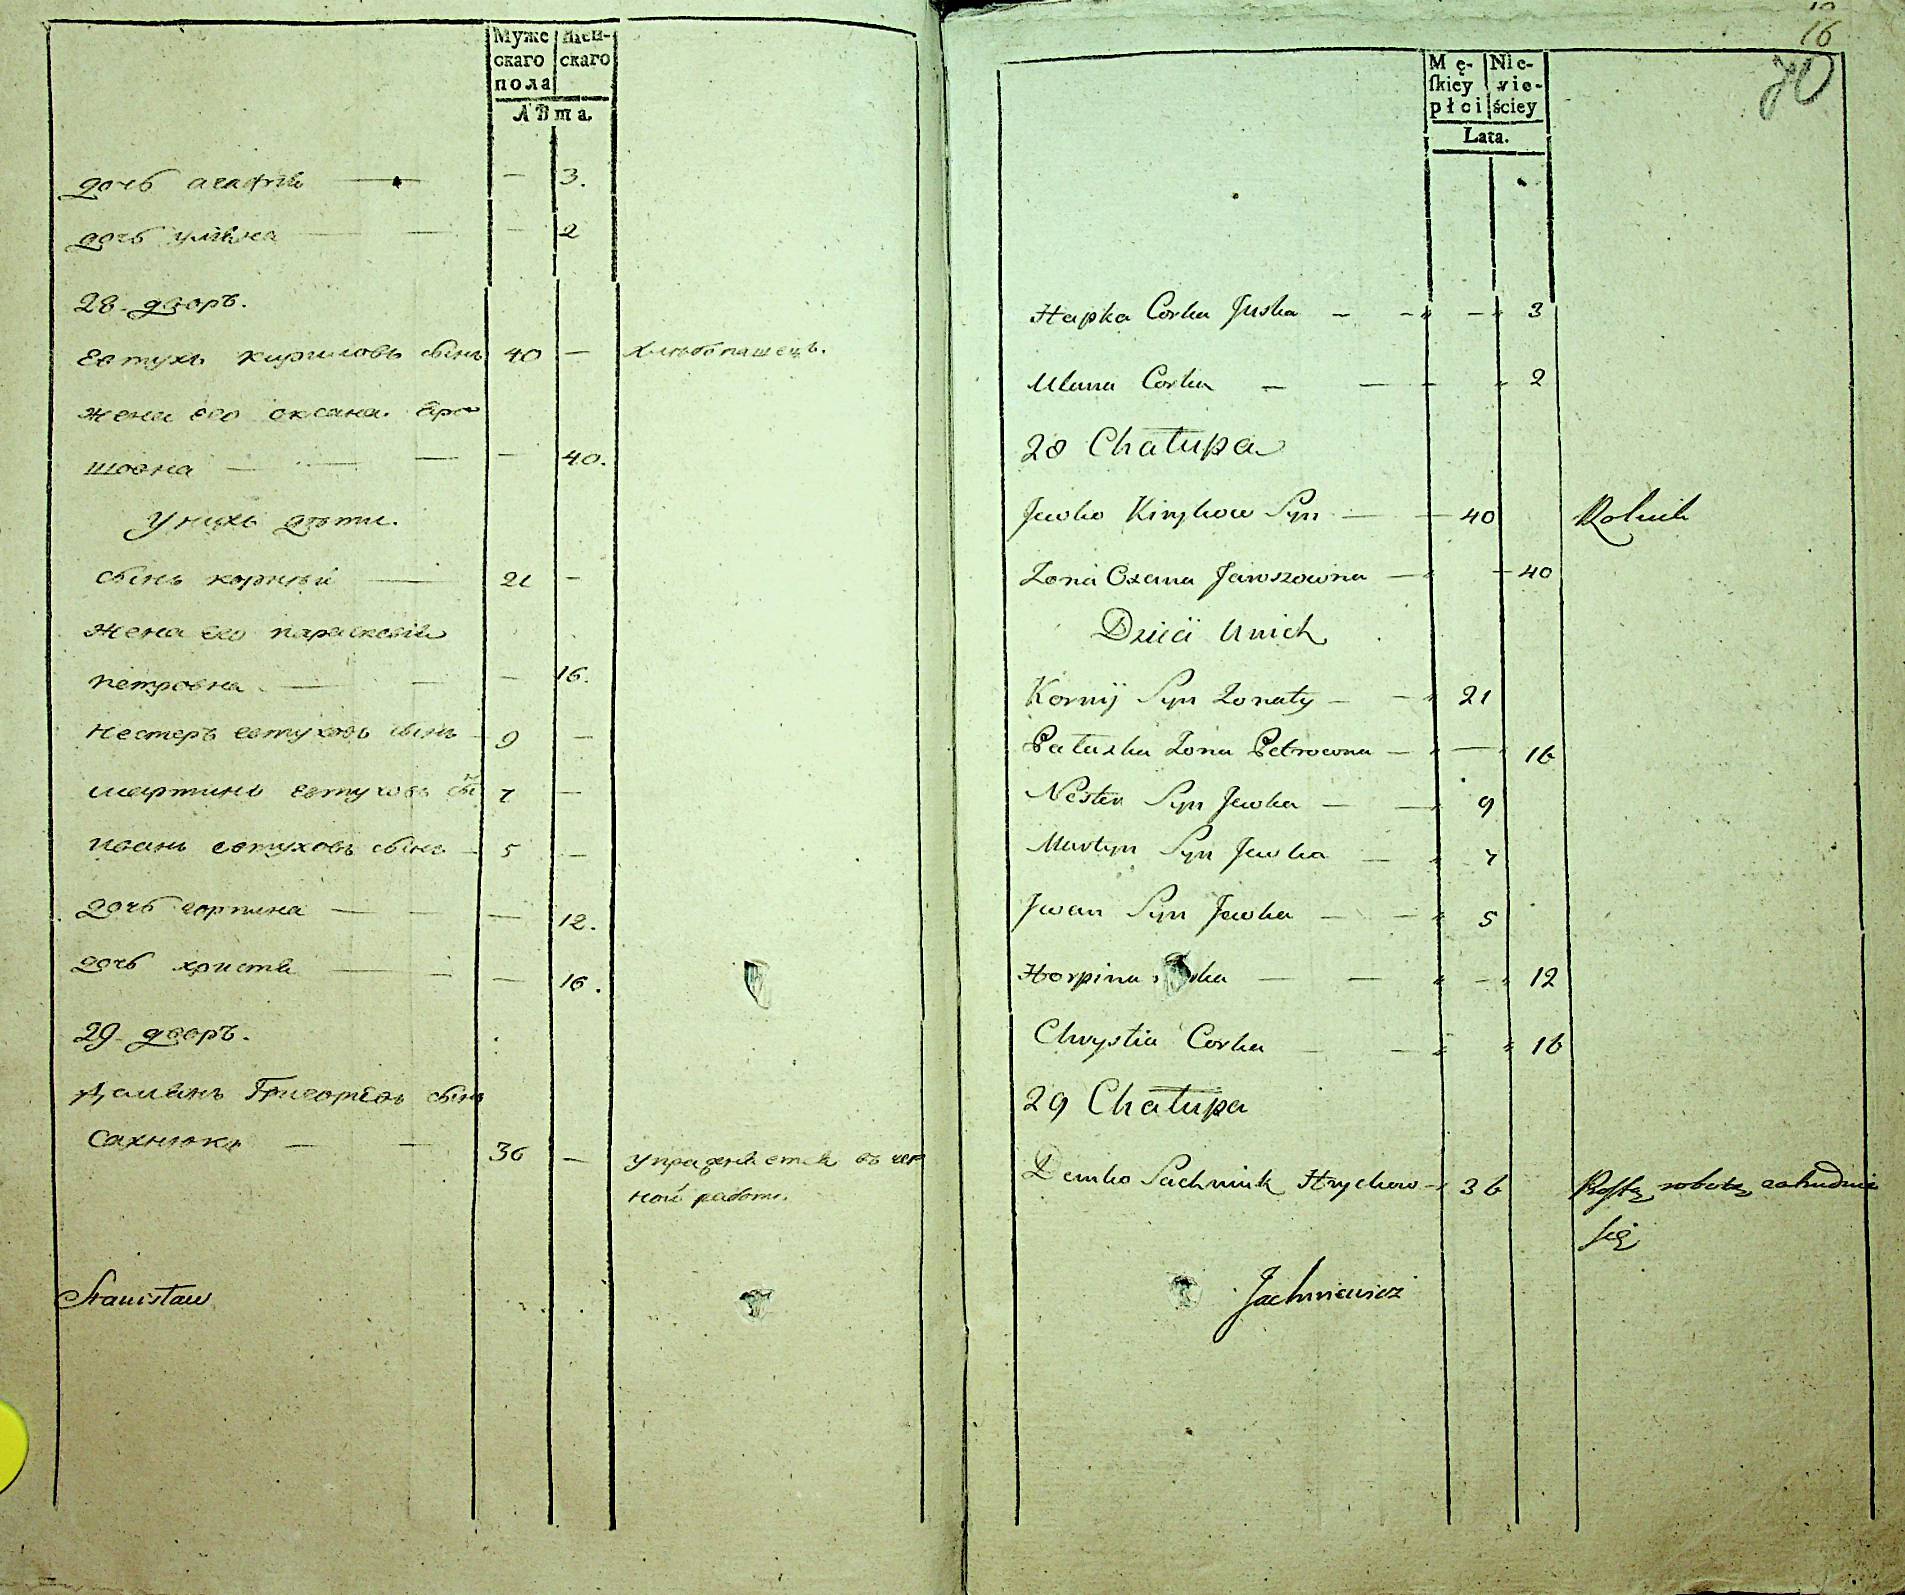 Муже
скаго
пола
Жен-
скаго
Лѣта.
дочь агафія — — 3.
дочь уліяна — — 2
28. дворъ.
Евтухъ кириловъ сынъ 40 — хлѣбопашецъ.
жена его оксана. Яро
шовна — — 40.
У нихъ дѣти.
сынъ корнѣй — 21 —
жена его параскевія
петровна — — 16.
нестеръ евтуховъ сынъ — 9 —
мартинъ евтуховъ сы͠н 7 —
иванъ евтуховъ сынъ — 5 —
дочь горпина — — 12.
дочь христя — — 16.
29. дворъ.
Дамянъ Григорьевъ сынъ
Сахнюкъ — 36 — упражняется въ чер
ной работѣ.
Stanisław
16
70
Mę-
skiey
płci
Nie-
wie-
ściey
Lata.
Hapka Corka Juska — 3
Ulana Corka — 2
28 Chałupa
Jewko Kirykow Syn — 40 Rolnik
Zona Oxana Jaroszowna — 40
Dzieci Unich
Kornij Syn Zonaty — 21
Pałaszka Zona Petrowna — 16
Nester Syn Jewka — 9
Martyn Syn Jewka — 7
Jwan Syn Jewka — 5
Horpina rka — 12
Chrystia Corka — 16
29 Chałupa
Demko Sachniuk Hrychow — 36 robotą zatrudnia
się
Jachniewicz